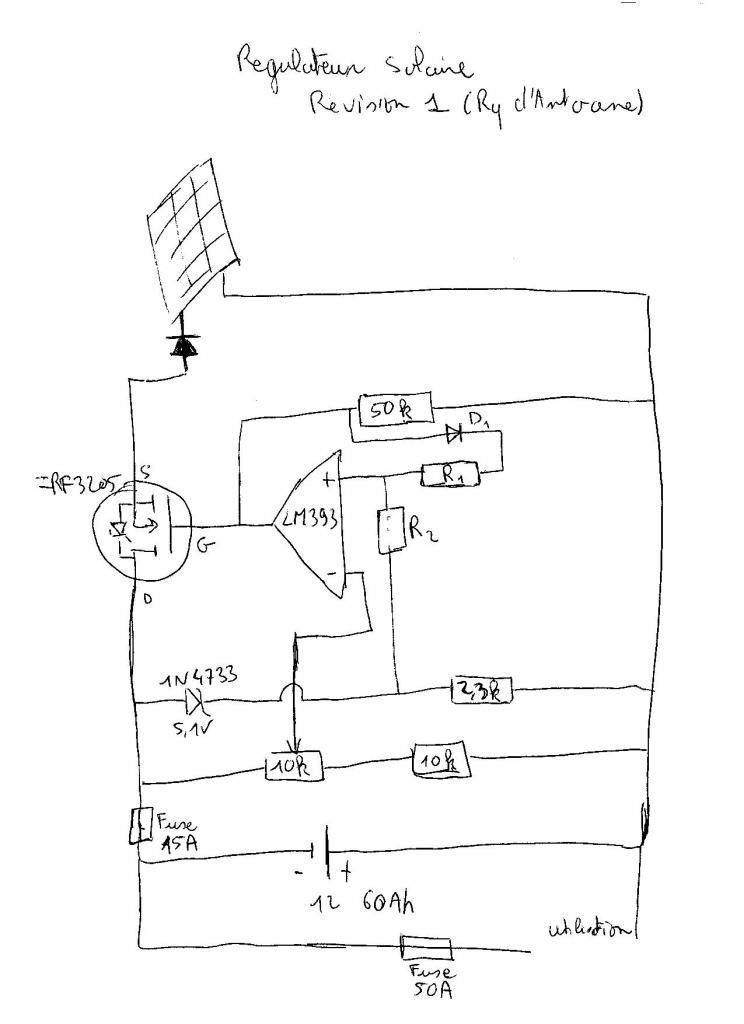 Regulateur Solaire
Revision 1 (Ry d'Antoane)
50k
D1
R1
IRF3205
S
+
LM393
G
R2
-
D
1N4733
5,1V
2,3k
10k
10k
Fuse
15A
- +
12 60Ah
utilisation
Fuse
50A